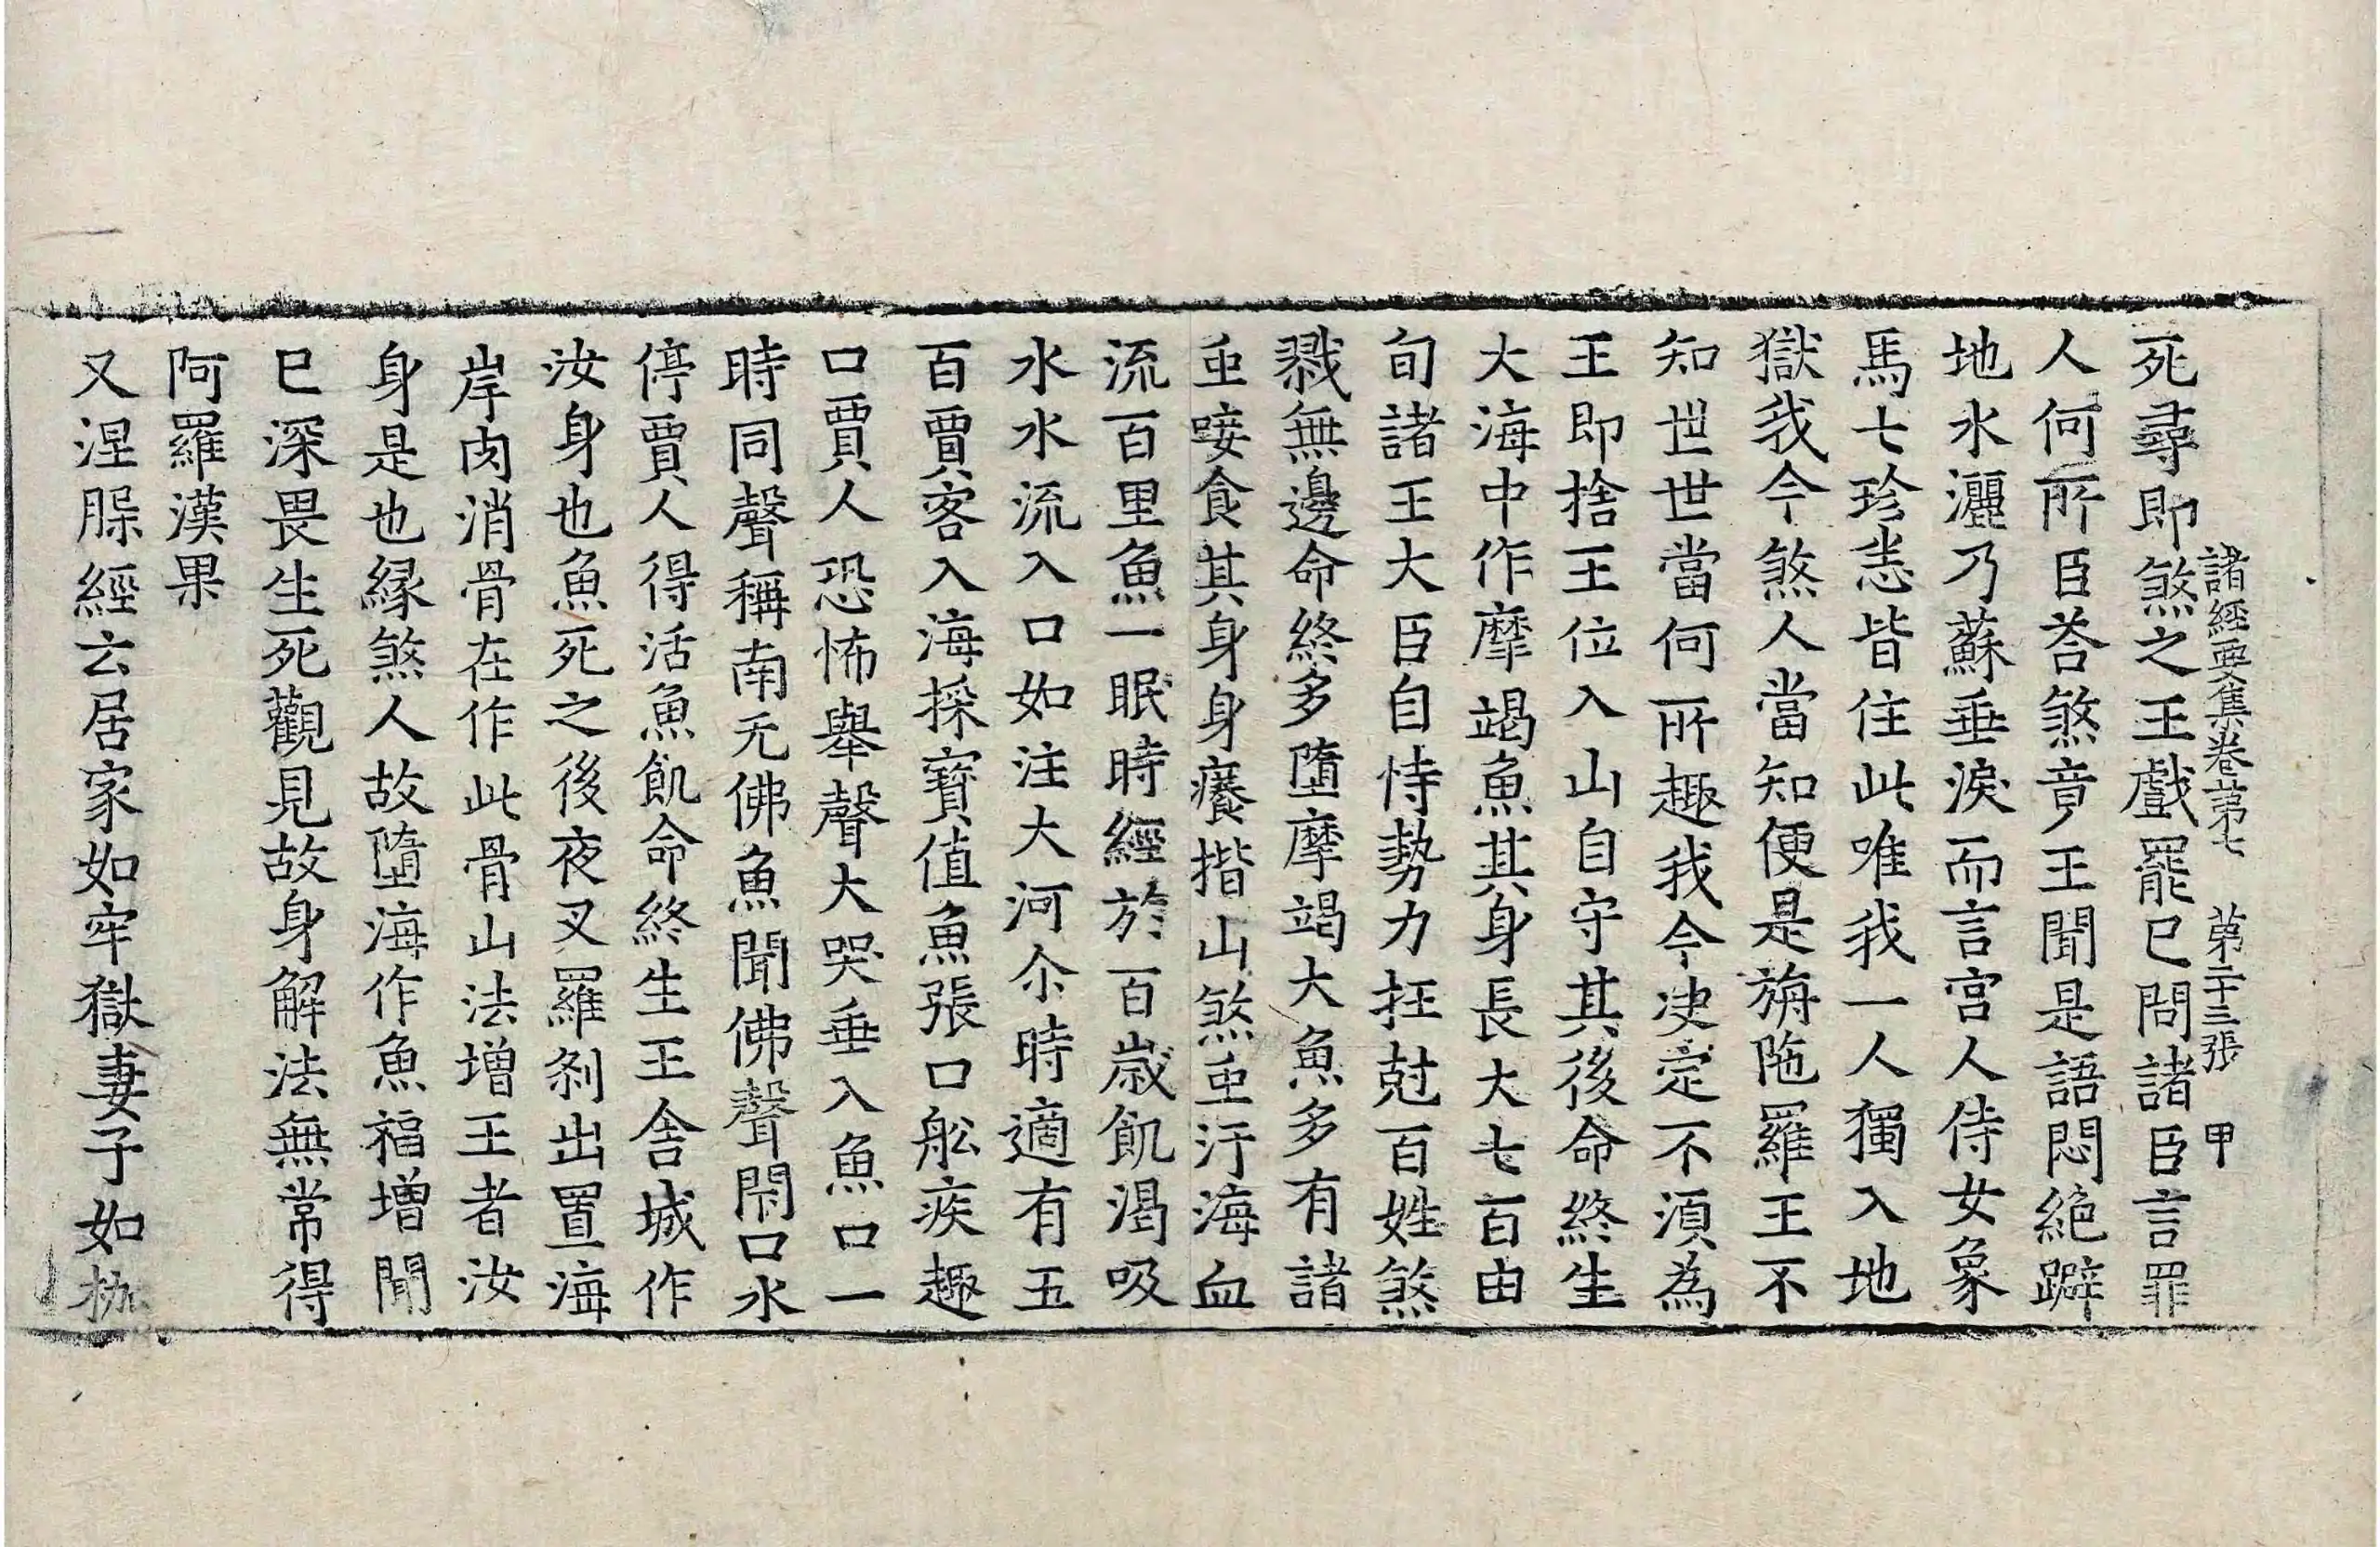 諸經要集卷第七　第二十三張　甲
死尋即煞之王戲罷已問諸臣言罪
人何所臣荅煞竟王聞是語悶絕躃
地水灑乃蘇垂淚而言宮人侍女象
馬七珍恙皆住此唯我一人獨入地
獄我今煞人當知便是旃陁羅王不
知世世當何所趣我今决定不湏為
王即捨王位入山自守其後命終生
大海中作摩竭魚其身長大七百由
旬諸王大臣自恃勢力抂尅百姓煞
戮無邊命終多墮摩竭大魚多有諸
䖝唼食其身身癢揩山煞䖝汙海血
流百里魚一眠時經於百歲飢渴吸
水水流入口如注大河尒時適有五
百賈客入海採寶值魚張口舩疾趣
口賈人恐怖舉聲大哭垂入魚口一
時同聲稱南无佛魚聞佛聲閇口水
停賈人得活魚飢命終生王舍城作
汝身也魚死之後夜叉羅剎出置海
岸肉消骨在作此骨山法增王者汝
身是也緣煞人故墮海作魚福增聞
已深畏生死觀見故身解法無常得
阿羅漢果
又涅槃經云居家如牢獄妻子如枷